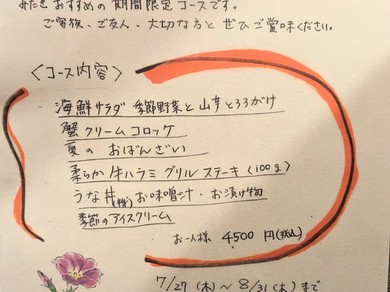 おすすめの期間限定コースです。
ご家族、ご友人、大切な方と ぜひご賞味ください。
〈コース内容〉
海鮮サラダ 季節野菜と山芋とろろがけ
蟹クリームコロッケ
夏の おばんざい
柔らか牛ハラミグリルステーキ(100g)
うな丼 お味噌汁・お漬け物
季節のアイスクリーム
お一人様 4500円(税込)
7/27(木)〜8/31(木)まで